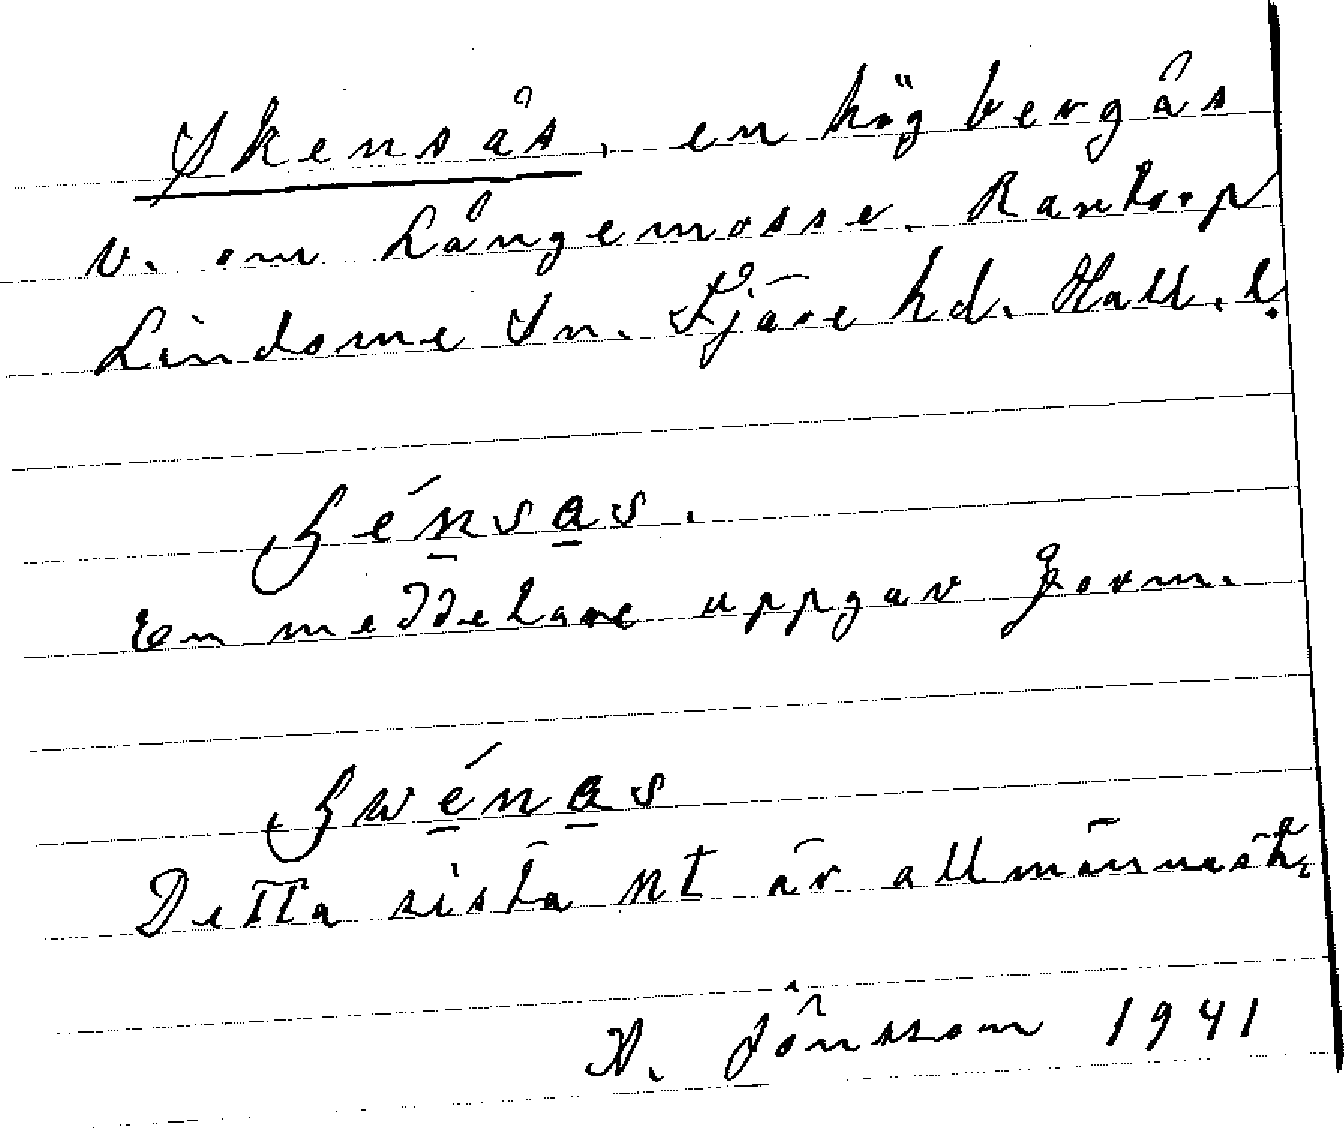 Skensås, en hög bergås
v. om Långemosse. Rantorp
Lindome Sn. Fjäre hd. Hall. l.
En meddelare uppgav form.
Detta sista nt är allmännast.
A. Jönsson 1941